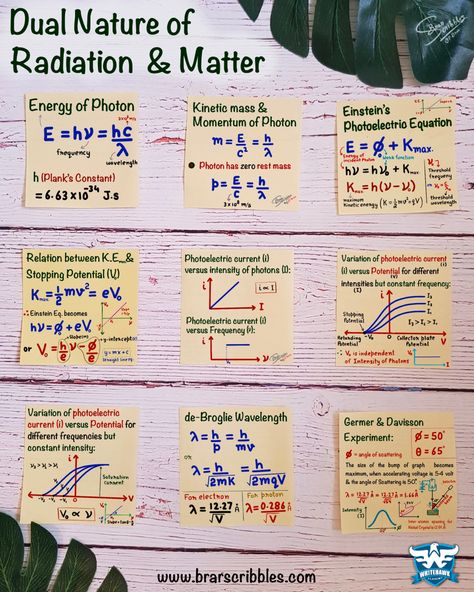 Dual Nature of
Radiation & Matter
Energy of Photon
E = hν = hc/λ
frequency
wavelength
h (Plank's Constant)
= 6.63×10⁻³⁴ J.s
Kinetic mass &
Momentum of Photon
m = E/c² = h/cλ
Photon has zero rest mass
p = E/c = h/λ
3×10⁸ m/s
Einstein's
Photoelectric Equation
E = ϕ₀ + Kmax.
Energy of
incident Photon
Work function
hν = hν₀ + Kmax.
Kmax. = h(ν - ν₀)
Threshold
frequency
Threshold
wavelength
maximum
Kinetic energy
Relation between K.E. &
Stopping Potential (V₀)
Kmax. = ½mv² = eV₀
∴ Einstein Eq. becomes
hν = ϕ₀ + eV₀
or V₀ = hν/e − ϕ/e
y-intercept
y = mx + c
straight line
Photoelectric current (i)
versus intensity of photons (I):
i
i ∝ I
I
Photoelectric current (i)
versus Frequency (ν):
i
ν
Variation of photoelectric current
(i) versus Potential for different
(V)
intensities but constant frequency:
i
I₃
I₂
I₁
I₃ > I₂ > I₁
Stopping
Potential
-V₀
V
Retarding
Potential
Collector plate
Potential
∴ V₀ is independent
of Intensity of Photons
Variation of photoelectric
current (i) versus Potential for
different frequencies but
constant intensity:
i
ν₃ > ν₂ > ν₁
Saturation
current
V
V₀ ∝ ν
de-Broglie Wavelength
λ = h/p = h/mv
or
λ = h/√2mK = h/√2mqV
For electron
For proton
λ = 12.27/√V
λ = 0.286/√V
Germer & Davisson
Experiment:
ϕ = 50°
ϕ = angle of scattering
θ = 65°
The size of the bump of graph becomes
maximum, when accelerating voltage is 54 volt
& the angle of Scattering is 50°
λ = 12.27/√V = 12.27/√54 = 1.66Å
Intensity
WHITEHAWK
www.brarscribbles.com